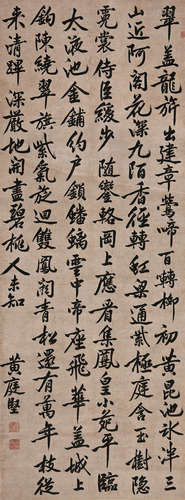 翠盖龍旂出建章鶯啼百轉柳初黄昆池冰泮三
山近阿閣花深九陌香徑轉紅梁通紫極庭含玉樹隱
霓裳侍臣緩步隨鑾輅岡上應看集鳳皇小苑平臨
太液池金鋪約户鎖蟠螭雲中帝座飛華蓋城上
鉤陳繞翠旗紫氣旋迴雙鳳闕青松還有萬年枝從
來清蹕深嚴地開盡碧桃人未知
黄庭堅